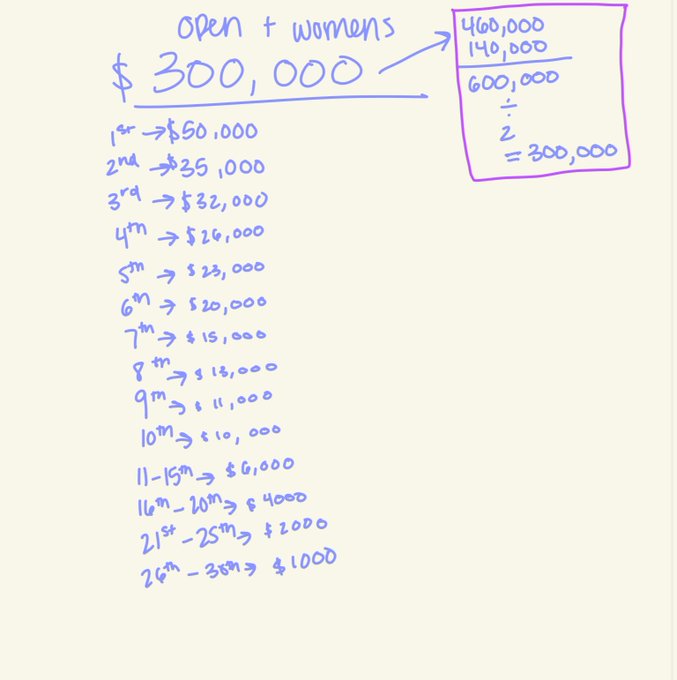 open + womens
$ 300,000
460,000
140,000
600,000
÷
2
= 300,000
1st → $50,000
2nd → $35,000
3rd → $32,000
4th → $26,000
5th → $23,000
6th → $20,000
7th → $15,000
8th → $13,000
9th → $11,000
10th → $10,000
11-15th → $6,000
16th - 20th → $4000
21st - 25th → $2000
26th - 30th → $1000